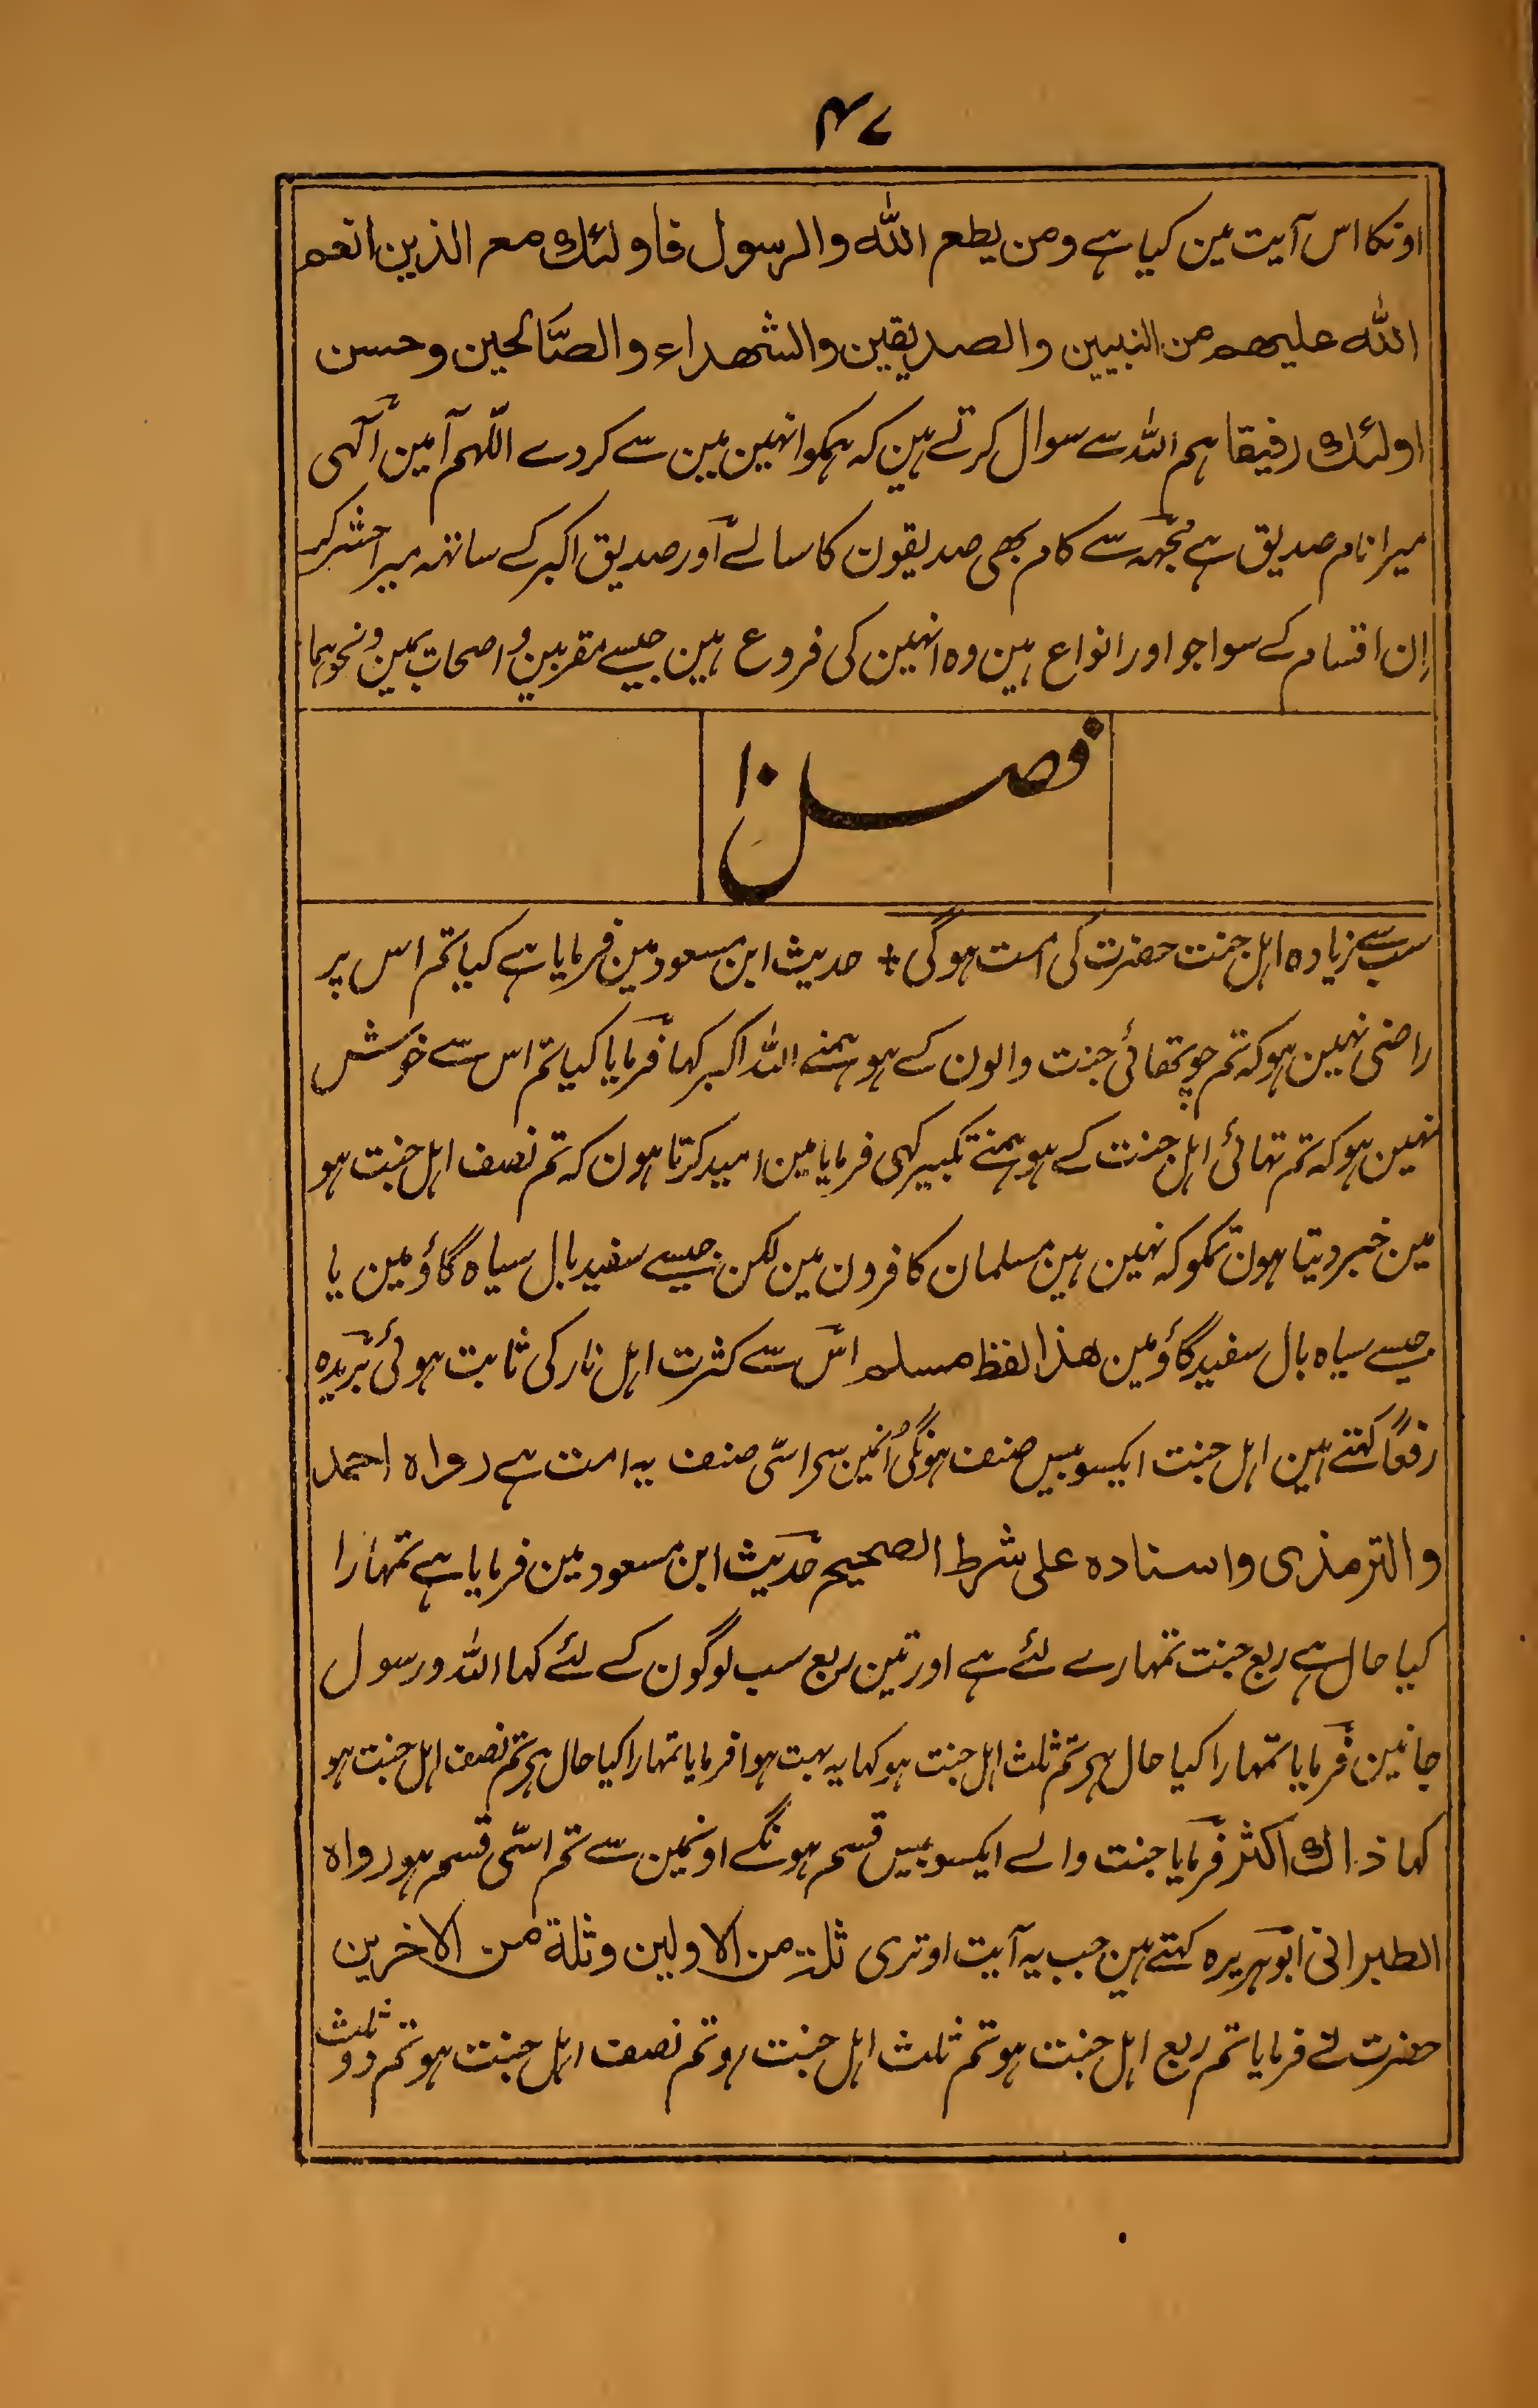 ۴۷
اونکا اس آیت مین کیا ہے ومن یطع اللّٰہ والرسول فاولئك مع الذین انعم
اللّٰہ علیھم من النبیین والصدیقین والشھداء والصّالحین وحسن
اولئك رفیقا ہم اللہ سے سوال کرتے ہین کہ ہمکو انہین مین سے کردے اللّہم آمین آلٰہی
میرا نام صدیق ہے مجہہ سے کام بھی صدیقون کا سا لے آور صدیق اکبر کے ساتہہ میرا حشر کر
اِن اقسام کے سوا جو اور انواع ہین وہ انہین کی فروع ہین جیسے مقربین و اصحاب یمین ونحوہما
فصل ۱۰
سب سے زیادہ اہل جنت حضرت کی امت ہوگی + حدیث ابن مسعود مین فرمایا ہے کیا تم اس پر
راضی نہین ہو کہ تم چوتھائی جنت والون کے ہو ہمنے اللہ اکبر کہا فرمایا کیا تم اس سے خوش
نہین ہو کہ تم تہائی اہل جنت کے ہو ہمنے تکبیر کہی فرمایا مین امید کرتا ہون کہ تم نصف اہل جنت ہو
مین خبر دیتا ہون تمکو کہ نہین ہین مسلمان کافرون مین لکن جیسے سفید بال سیاہ گاؤ مین یا
جیسے سیاہ بال سفید گاؤ مین ھذا لفظ مسلم اس سے کثرت اہل نار کی ثابت ہوئی بریدہ
رفعًا کہتے ہین اہل جنت ایکسو بیس صنف ہونگی اُنمین سو اسّی صنف یہ امت ہے رواہ احمد
والترمذی واسنادہ علی شرط الصحیح حدیث ابن مسعود مین فرمایا ہے تمہارا
کیا حال ہے ربع جنت تمہارے لئے ہے اور تین ربع سب لوگون کے لئے کہا اللہ ورسول
جانین فرمایا تمہارا کیا حال ہو تم ثلث اہل جنت ہو کہا یہ بہت ہوا فرمایا تمہارا کیا حال ہو تم نصف اہل جنت ہو
کہا ذاك اکثر فرمایا جنت والے ایکسو بیس قسم ہونگے اونمین سے تم اسّی قسم ہو رواہ
الطبرانی ابو ہریرہ کہتے ہین جب یہ آیت اوتری ثلۃ من الاولین وثلة من الاخرین
حضرت نے فرمایا تم ربع اہل جنت ہو تم ثلث اہل جنت ہو تم نصف اہل جنت ہو تم دو ثلث